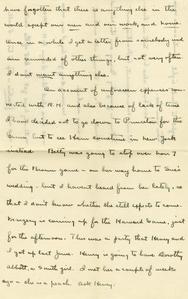 have forgotten that there is anything else in the
world except our men and our work, and
once in a while I get a letter from somebody and
am reminded of other things, but not very often
I don't want anything else.
On account of unforeseen expenses
with R.H. and also because of lack of time
I have decided not to go down to Princeton for the
game, but to see them sometime in New York
instead. Betty was going to stop over here
for the Brown game - on her way home to
wedding, but I haven't heard from her lately, so
that I don't know whether she still expects to come.
is coming up for the Harvard Game, just
for the afternoon. This was a party that Henry and
I got up last June. Henry is going to have Dorothy
Abbott, a Smith girl. I met her a couple of weeks
ago - she is a peach. Ask Henry.